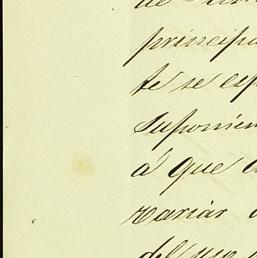 de
principa
te se esp
suponien
á que
variar
del uso